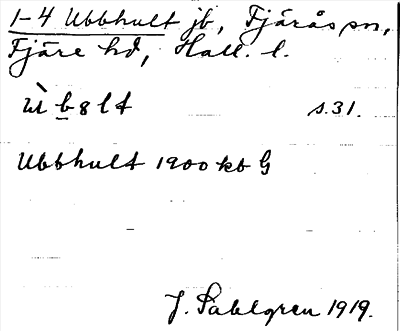 1-4 Ubbhult jb, Fjärås sn,
Fjäre hd, Hall. l.
s. 31.
Ubbhult 1900 kb G
J. Sahlgren 1919.